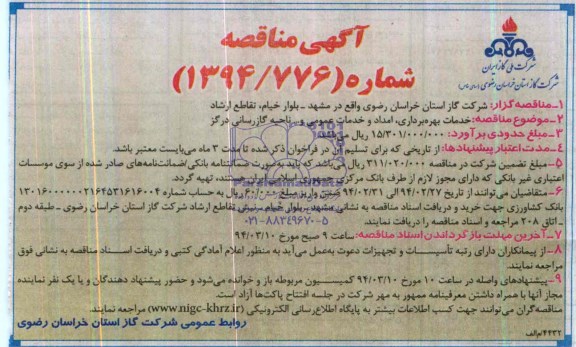 آگهی مناقصه
شماره (۱۳۹۴/۷۷۶)
شرکت ملی گاز ایران
شرکت گاز استان خراسان رضوی (سهامی خاص)
۱-مناقصه گزار: شرکت گاز استان خراسان رضوی واقع در مشهد ـ بلوار خیام، تقاطع ارشاد
۲-موضوع مناقصه: خدمات بهره‌برداری، امداد و خدمات عمومی و ناحیه گازرسانی درگز
۳-مبلغ حدودی برآورد: ۱۵/۳۰۱/۰۰۰/۰۰۰ ریال می‌باشد.
۴-مدت اعتبار پیشنهادها: از تاریخی که برای تسلیم آن در فراخوان ذکر شده تا مدت ۳ ماه می‌بایست معتبر باشد.
۵-مبلغ تضمین شرکت در مناقصه ۳۱۱/۰۲۰/۰۰۰ ریال می‌باشد که باید به‌صورت ضمانتنامه بانکی/ضمانت‌نامه‌های صادر شده از سوی موسسات
اعتباری غیر بانکی که دارای مجوز لازم از طرف بانک مرکزی جمهوری اسلامی ایران هستند، تهیه گردد.
۶-متقاضیان می‌توانند از تاریخ ۹۴/۰۲/۲۷ الی ۹۴/۰۲/۳۱ ضمن واریز مبلغ ریال به حساب شماره ۱۳۰۱۶۰۰۰۰۰۰۲۱۶۴۵۳۱۶۱۶۰۰۴
بانک کشاورزی جهت خرید و دریافت اسناد مناقصه به نشانی مشهد ـ بلوار خیام ـ نبش تقاطع ارشاد شرکت گاز استان خراسان رضوی ـ طبقه دوم
ـ اتاق ۲۰۸ مراجعه و اسناد مناقصه را دریافت نمایند.
۰۲۱-۸۸۳۴۹۶۷۰-۵
۷-آخرین مهلت بازگرداندن اسناد مناقصه: ساعت ۹ صبح مورخ ۹۴/۰۳/۱۰
۸-از پیمانکاران دارای رتبه تأسیسات و تجهیزات دعوت به‌عمل می‌آید به منظور اعلام آمادگی کتبی و دریافت اسناد مناقصه به نشانی فوق
مراجعه نمایند.
۹-پیشنهادهای واصله در ساعت ۱۰ مورخ ۹۴/۰۳/۱۰ کمیسیون مربوطه باز و خوانده می‌شود و حضور پیشنهاد دهندگان و یا یک نفر نماینده
مجاز آنها با همراه داشتن معرفینامه ممهور به مهر شرکت در جلسه افتتاح پاکت‌ها آزاد است.
مناقصه‌گران می‌توانند جهت کسب اطلاعات بیشتر به پایگاه اطلاع‌رسانی الکترونیکی (www.nigc-khrz.ir) مراجعه نمایند.
روابط عمومی شرکت گاز استان خراسان رضوی
۴۴۳۲/م‌الف